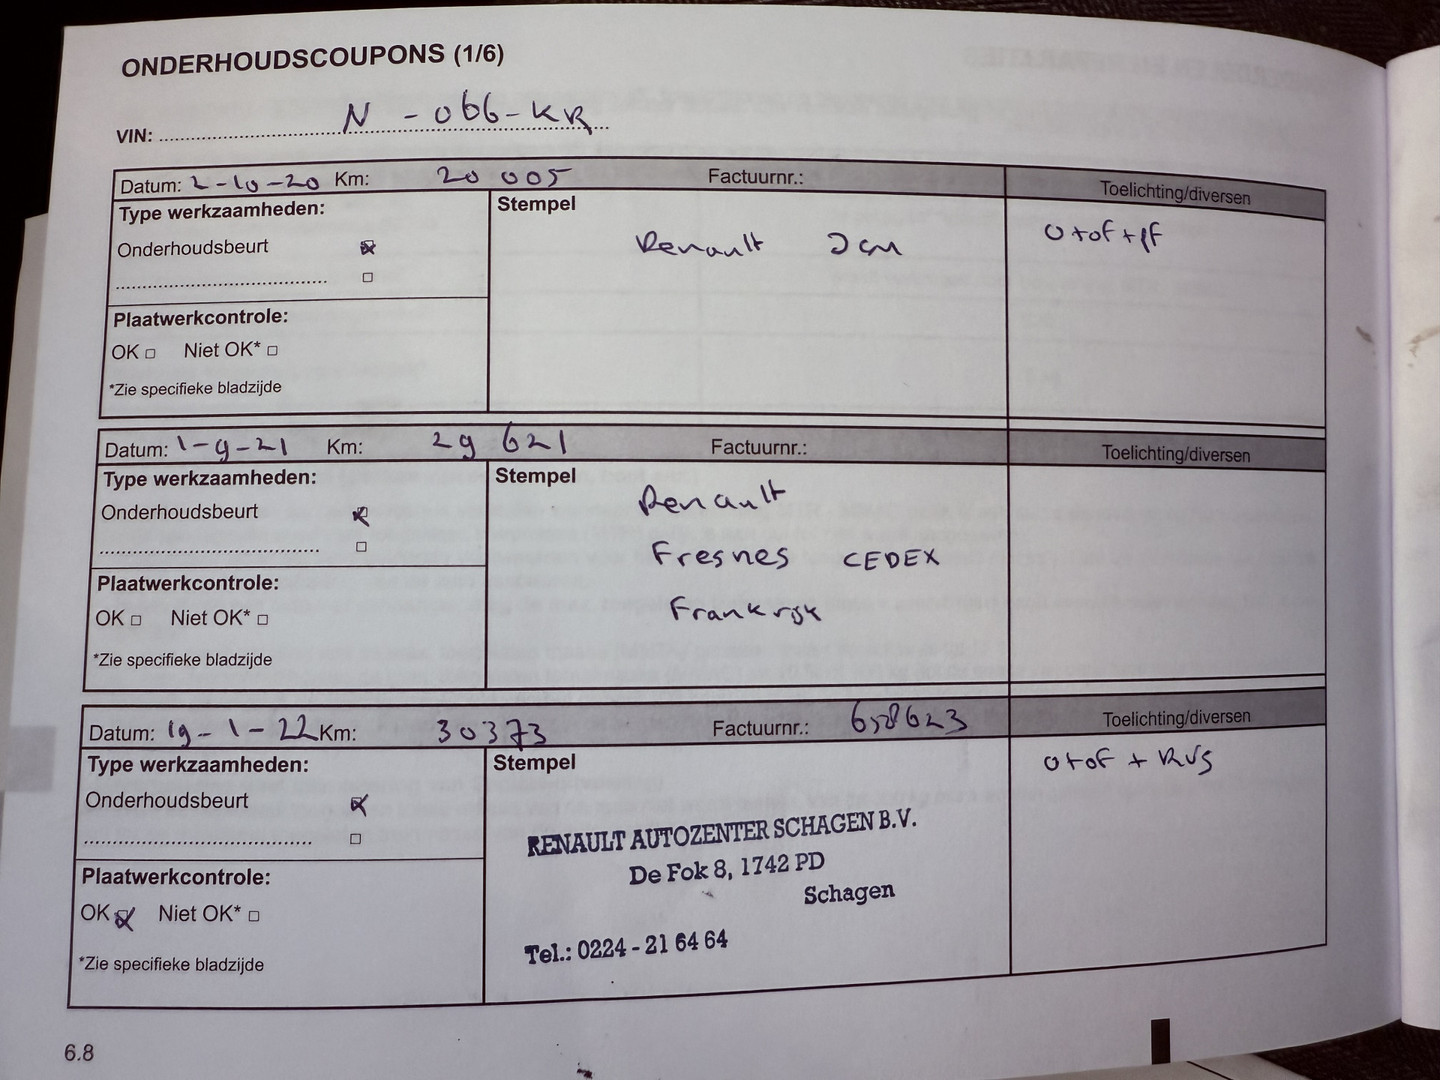 ONDERHOUDSCOUPONS (1/6)
VIN: N - 066-KR
Datum: 2-10-20 Km: 20 005 Factuurnr.: Toelichting/diversen
Type werkzaamheden: Stempel
Onderhoudsbeurt Renault O+of+pf
Plaatwerkcontrole:
OK □ Niet OK* □
*Zie specifieke bladzijde
Datum: 1-9-21 Km: 29 621 Factuurnr.: Toelichting/diversen
Type werkzaamheden: Stempel
Onderhoudsbeurt Renault
Fresnes CEDEX
Plaatwerkcontrole:
Frankrijk
OK □ Niet OK* □
*Zie specifieke bladzijde
Datum: 19-1-22 Km: 30373 Factuurnr.: 658623 Toelichting/diversen
Type werkzaamheden: Stempel
Onderhoudsbeurt O+of + RVS
RENAULT AUTOZENTER SCHAGEN B.V.
De Fok 8, 1742 PD
Plaatwerkcontrole:
Schagen
OK Niet OK* □
Tel.: 0224 - 21 64 64
*Zie specifieke bladzijde
6.8